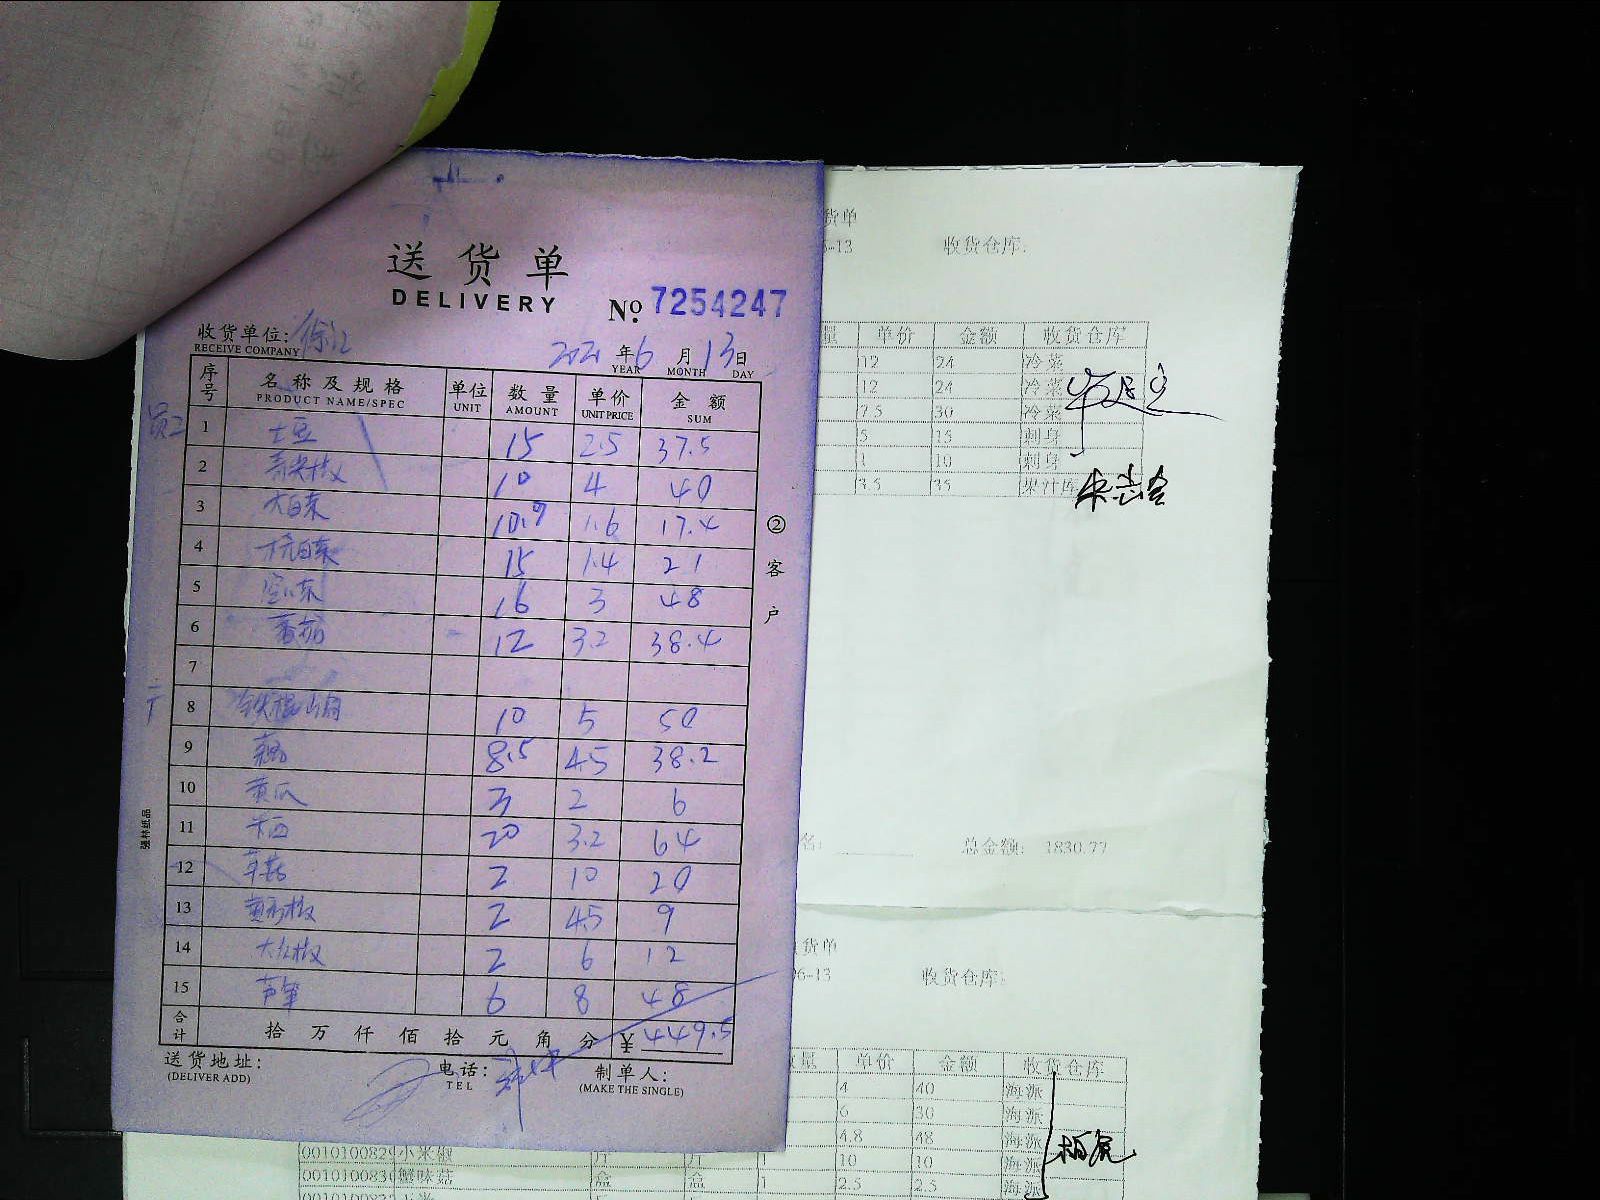 送货单
DELIVERY
№ 7254247
收货单位: 徐汇
RECEIVE COMPANY
2021 年 6 月 13 日
YEAR MONTH DAY
序号 名称及规格 单位 数量 单价 金额
PRODUCT NAME/SPEC UNIT AMOUNT UNIT PRICE SUM
员工
1 土豆 15 2.5 37.5
2 青尖椒 10 4 40
3 大白菜 10.9 1.6 17.4
4 杭白菜 15 1.4 21
5 空心菜 16 3 48
6 番茄 12 3.2 38.4
7
8 铁棍山药 10 5 50
9 8.5 4.5 38.2
10 黄瓜 3 2 6
11 20 3.2 64
12 草菇 2 10 20
13 黄彩椒 2 4.5 9
14 大红椒 2 6 12
15 芦笋 6 8 48
合计 拾 万 仟 佰 拾 元 角 分 ¥ 449.5
送货地址:
(DELIVER ADD)
电话:
TEL
制单人:
(MAKE THE SINGLE)
②客户
强林纸品
货单
6-13 收货仓库:
量 单价 金额 收货仓库
12 24 冷菜
12 24 冷菜
7.5 30 冷菜
5 15 刺身
1 10 刺身
3.5 35 果汁库
名: 总金额: 1830.77
货单
06-13 收货仓库:
数量 单价 金额 收货仓库
4 40 海派
6 30 海派
4.8 48 海派
0010100829 小米椒 斤 斤 1 10 10 海派
0010100830 蟹味菇 盒 盒 1 2.5 2.5 海派